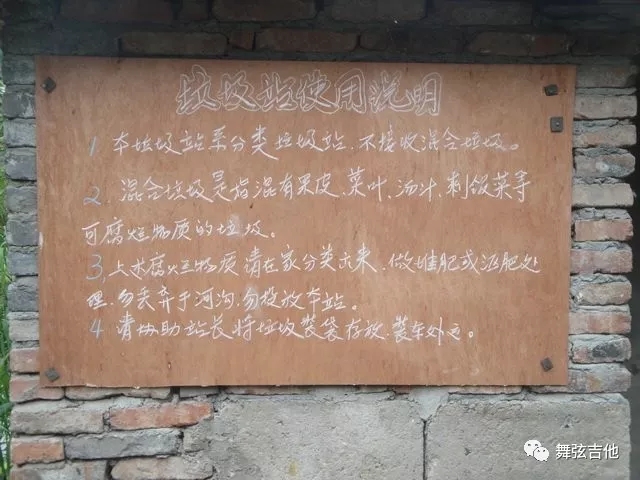 垃圾站使用说明
1 本垃圾站系分类垃圾站、不接收混合垃圾。
2、混合垃圾是指混有果皮、菜叶、汤汁、剩饭菜等
可腐烂物质的垃圾。
3,上术腐烂物质请在家分类出来、做堆肥或沤肥处
理、勿丢弃于河沟、勿投放本站。
4 请协助站长将垃圾装袋存放、装车外运。
舞弦吉他